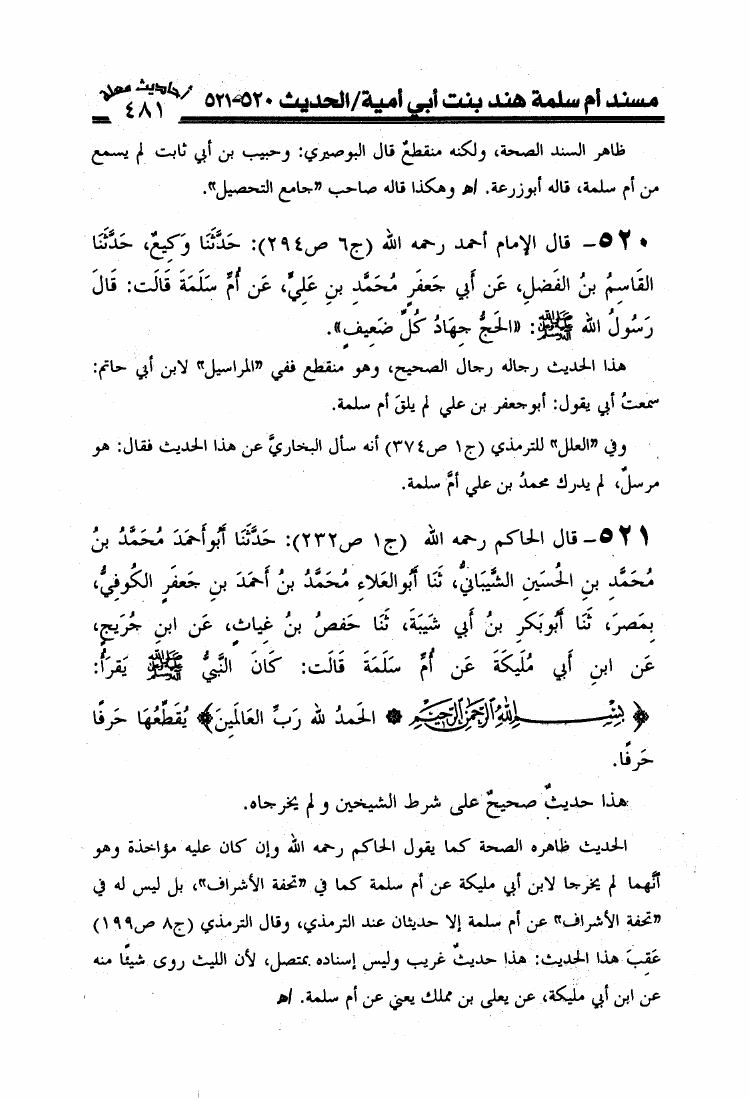 أحاديث معلة
٤٨١
مسند أم سلمة هند بنت أبي أمية/الحديث ٥٢٠-٥٢١
ظاهر السند الصحة، ولكنه منقطعٌ قال البوصيري: وحبيب بن أبي ثابت لم يسمع
من أم سلمة، قاله أبوزرعة. اهـ وهكذا قاله صاحب «جامع التحصيل».
٥٢٠- قال الإمام أحمد رحمه الله (ج٦ ص٢٩٤): حَدَّثَنَا وَكِيعٌ، حَدَّثَنَا
القَاسِمُ بنُ الفَضلِ، عَن أَبِي جَعفَرٍ مُحَمَّدِ بنِ عَلِيٍّ، عَن أُمِّ سَلَمَةَ قَالَت: قَالَ
رَسُولُ الله ﷺ: «الحَجُّ جِهَادُ كُلِّ ضَعِيفٍ».
هذا الحديث رجاله رجال الصحيح، وهو منقطع ففي «المراسيل» لابن أبي حاتم:
سمعتُ أبي يقول: أبوجعفر بن علي لم يلقَ أم سلمة.
وفي «العلل» للترمذي (ج١ ص٣٧٤) أنه سأل البخاريَّ عن هذا الحديث فقال: هو
مرسلٌ، لم يدرك محمدُ بن علي أمَّ سلمة.
٥٢١- قال الحاكم رحمه الله (ج١ ص٢٣٢): حَدَّثَنَا أَبُوأَحمَدَ مُحَمَّدُ بنُ
مُحَمَّدِ بنِ الحُسَينِ الشَّيبَانِيُّ، ثَنَا أَبُوالعَلاءِ مُحَمَّدُ بنُ أَحمَدَ بنِ جَعفَرٍ الكُوفِيُّ،
بِمِصرَ، ثَنَا أَبُوبَكرِ بنُ أَبِي شَيبَةَ، ثَنَا حَفصُ بنُ غِيَاثٍ، عَن ابنِ جُرَيجٍ،
عَن ابنِ أَبِي مُلَيكَةَ عَن أُمِّ سَلَمَةَ قَالَت: كَانَ النَّبِيُّ ﷺ يَقرَأُ:
﴿بِسْمِ اللَّهِ الرَّحْمَنِ الرَّحِيمِ * الحَمدُ لله رَبِّ العَالَمِينَ﴾ يُقَطِّعُهَا حَرفًا
حَرفًا.
هذا حديثٌ صحيحٌ على شرط الشيخين ولم يخرجاه.
الحديث ظاهره الصحة كما يقول الحاكم رحمه الله وإن كان عليه مؤاخذة وهو
أنَّهما لم يخرجا لابن أبي مليكة عن أم سلمة كما في «تحفة الأشراف»، بل ليس له في
«تحفة الأشراف» عن أم سلمة إلا حديثان عند الترمذي، وقال الترمذي (ج٨ ص١٩٩)
عَقِبَ هذا الحديث: هذا حديثٌ غريب وليس إسناده بمتصل، لأن الليث روى شيئًا منه
عن ابن أبي مليكة، عن يعلى بن مملك يعني عن أم سلمة. اهـ